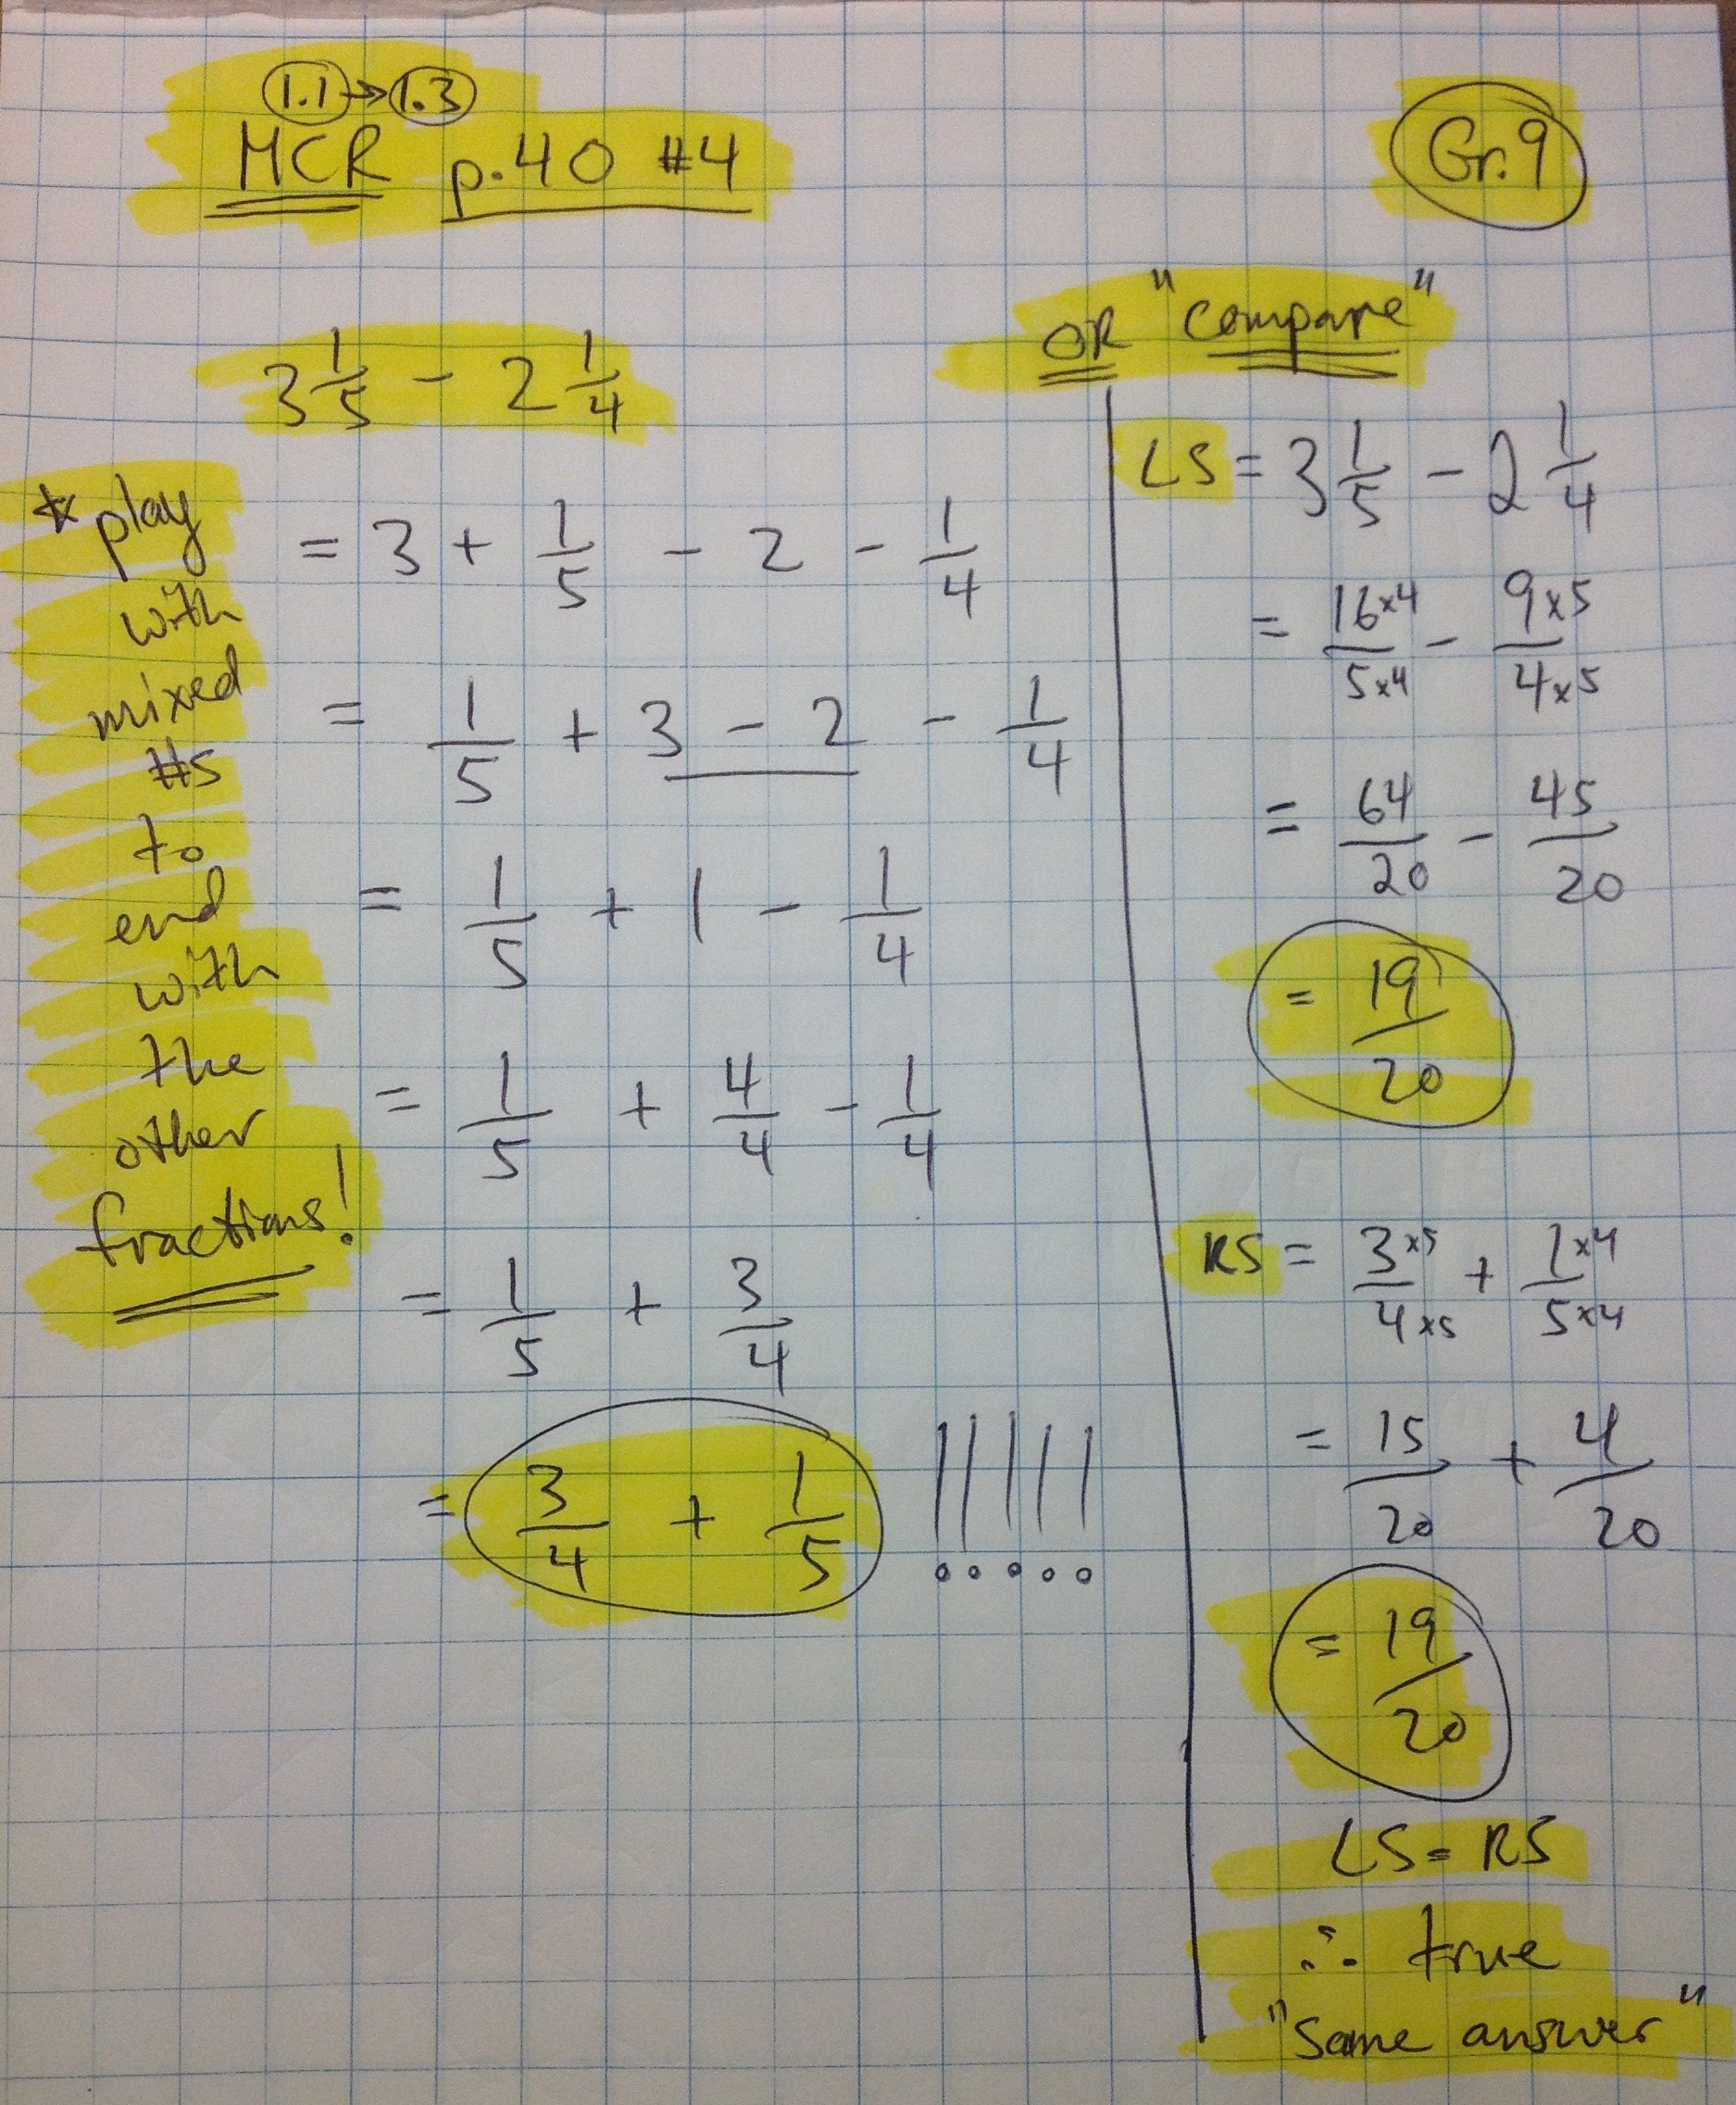 1.1 → 1.3
MCR p.40 #4
Gr.9
3 1/5 - 2 1/4
* play
with
mixed
#s
to
end
with
the
other
fractions!
= 3 + 1/5 - 2 - 1/4
= 1/5 + 3 - 2 - 1/4
= 1/5 + 1 - 1/4
= 1/5 + 4/4 - 1/4
= 1/5 + 3/4
= 3/4 + 1/5 !!!!!
OR "compare"
LS = 3 1/5 - 2 1/4
= 16×4/5×4 - 9×5/4×5
= 64/20 - 45/20
= 19/20
RS = 3×5/4×5 + 1×4/5×4
= 15/20 + 4/20
= 19/20
LS = RS
∴ true
"same answer"